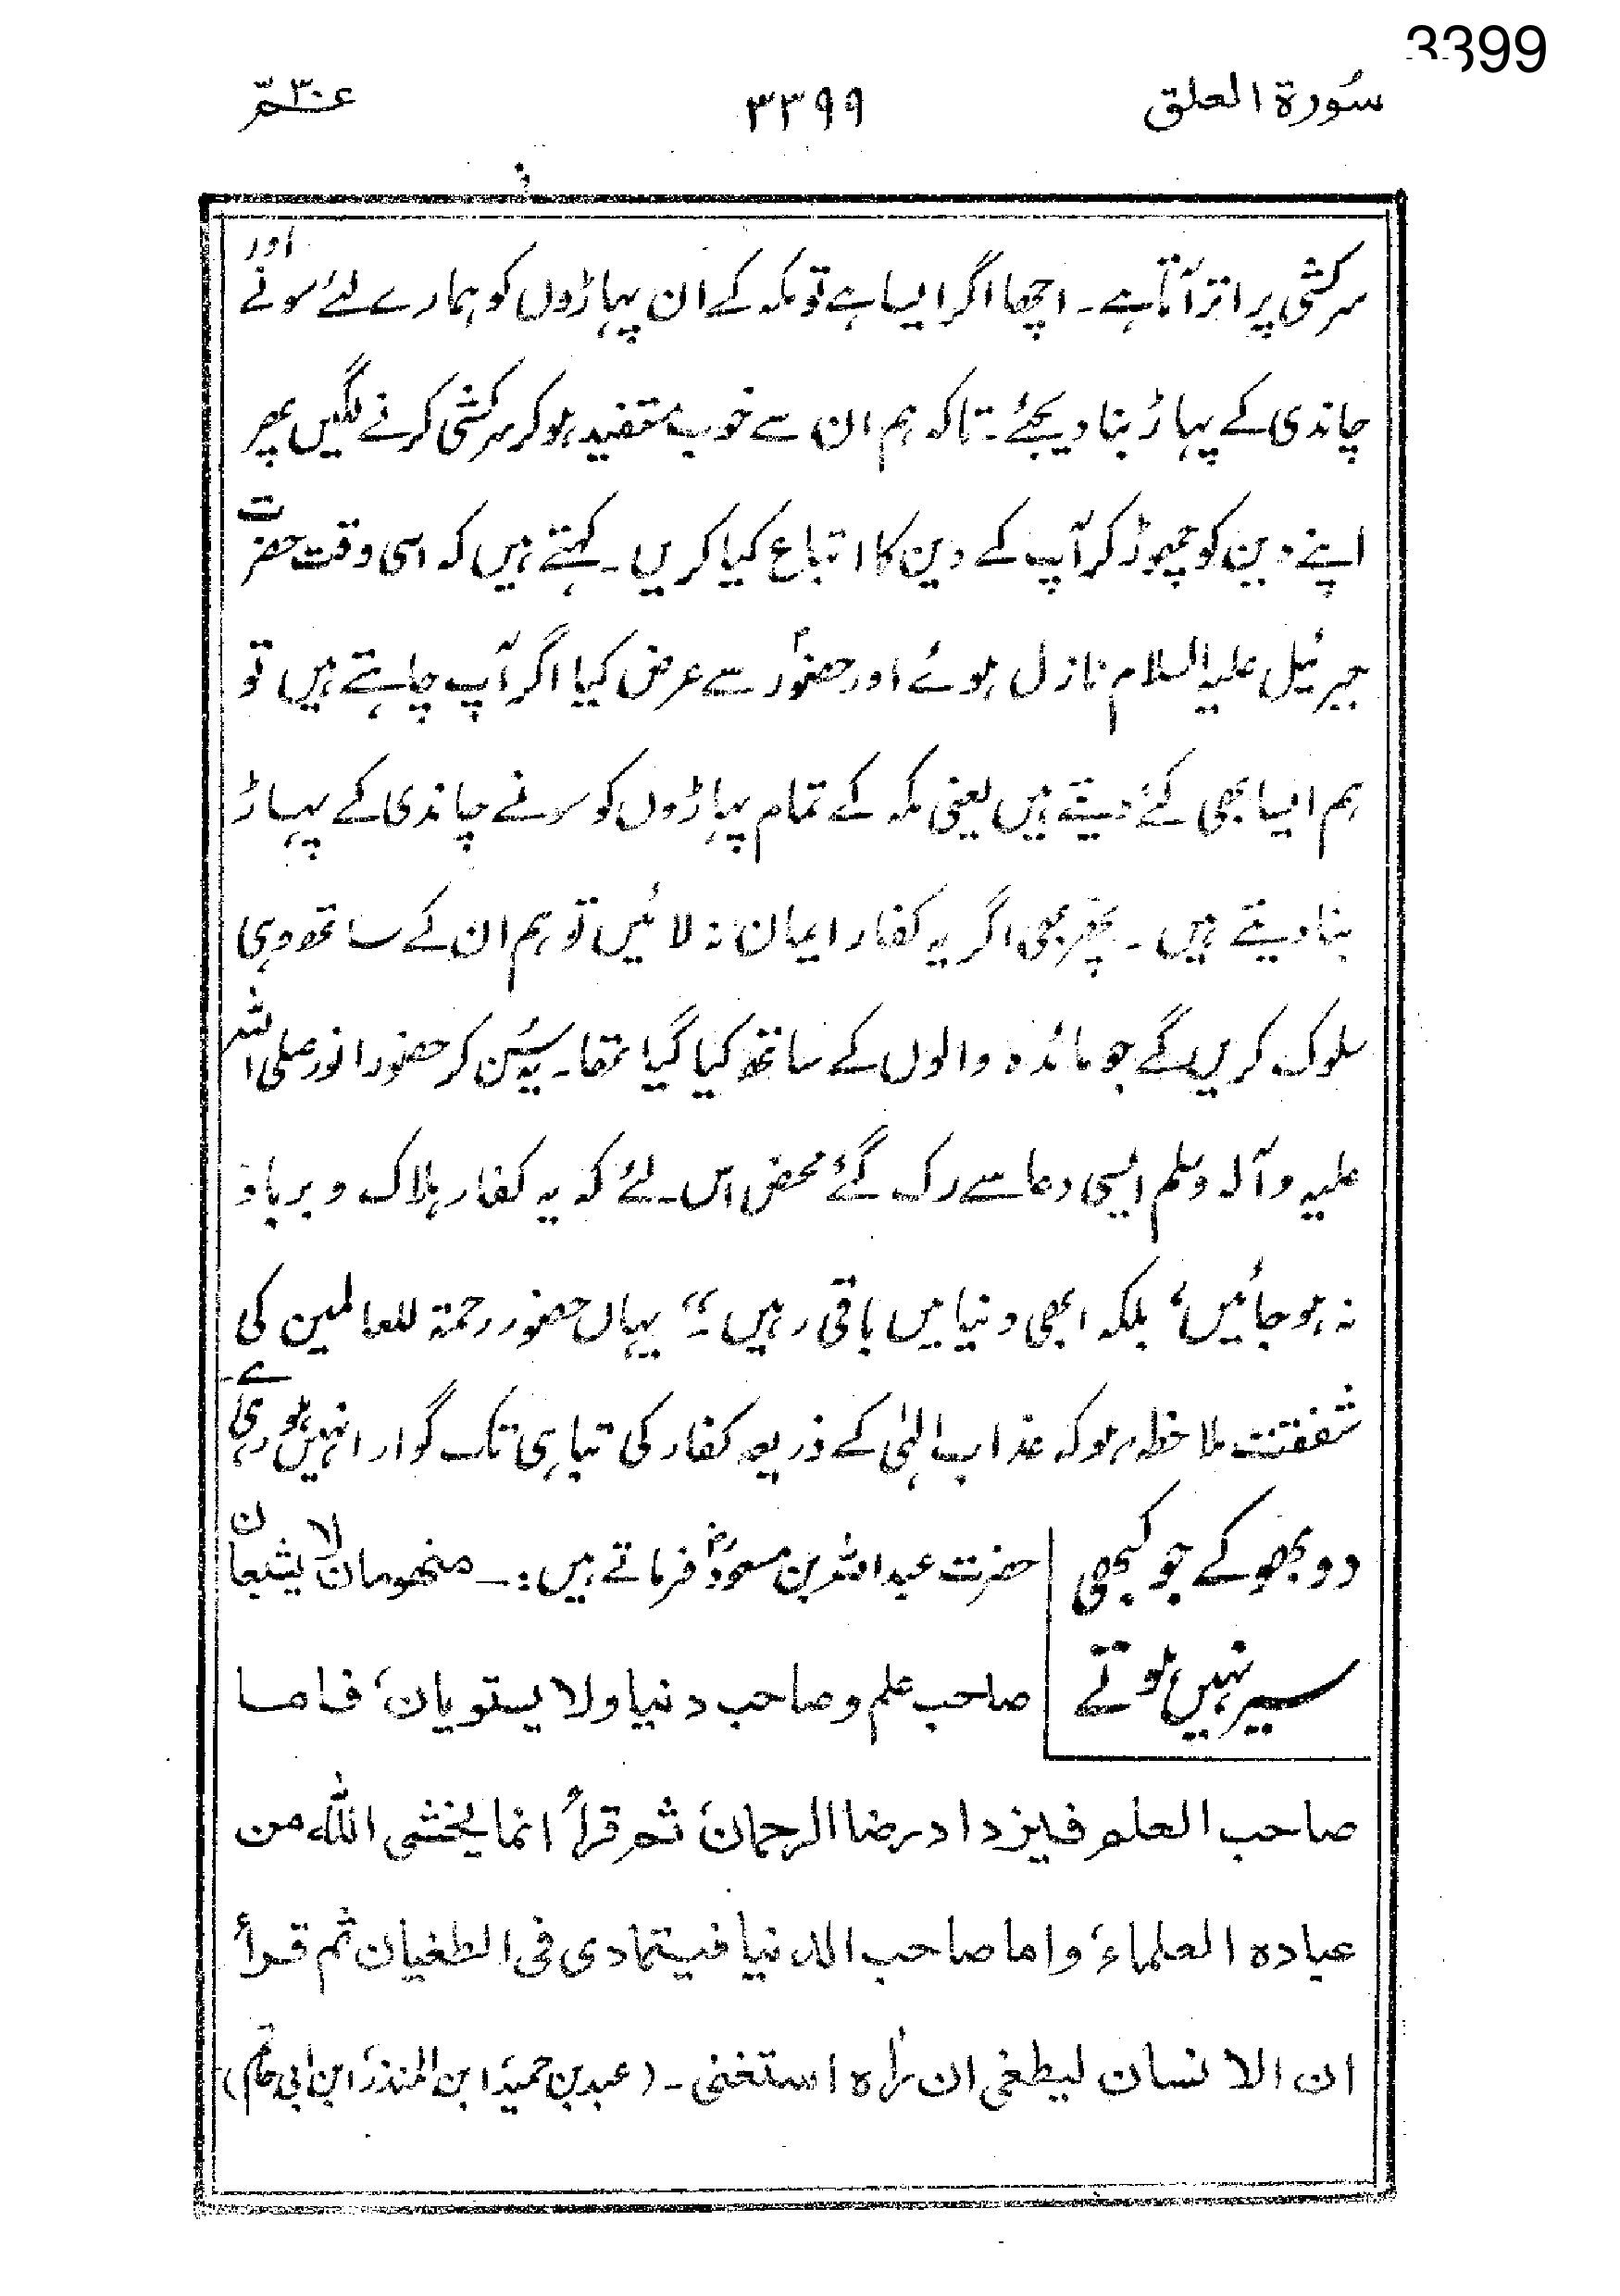 3399
سُورۃ العلق ۳۳۹۹ عمّ ۳۰
سرکشی پر اتر آتا ہے ۔ اچھا اگر ایسا ہے تو مکہ کے ان پہاڑوں کو ہمارے لئے سونے اور
چاندی کے پہاڑ بنا دیجئے ۔ تاکہ ہم ان سے خوب مستفید ہو کر سرکشی کرنے لگیں پھر
اپنے دین کو چھوڑ کر آپ کے دین کا اتباع کیا کریں ۔ کہتے ہیں کہ اسی وقت حضرت
جبرئیل علیہ السلام نازل ہوئے اور حضورؐ سے عرض کیا اگر آپ چاہتے ہیں تو
ہم ایسا بھی کئے دیتے ہیں یعنی مکہ کے تمام پہاڑوں کو سونے چاندی کے پہاڑ
بنا دیتے ہیں ۔ پھر بھی اگر یہ کفار ایمان نہ لائیں تو ہم ان کے ساتھ وہی
سلوک کریں گے جو مائدہ والوں کے ساتھ کیا گیا تھا ۔ یہ سُن کر حضور انور صلی اللہ
علیہ وآلہ وسلم ایسی دعا سے رک گئے محض اس لئے کہ یہ کفار ہلاک و برباد
نہ ہو جائیں، بلکہ ابھی دنیا میں باقی رہیں ۔" یہاں حضور رحمۃ للعالمین کی
شفقت ملاحظہ ہو کہ عذاب الہٰی کے ذریعہ کفار کی تباہی تک گوارا نہیں ہو رہی ہے ۔
دو بھوکے جو کبھی سیر نہیں ہوتے
حضرت عبداللہ بن مسعودؓ فرماتے ہیں :۔ منھومان لا یشبعان
صاحب علم و صاحب دنیا ولا یستویان، فاما
صاحب العلم فیزداد رضا الرحمان، ثم قرأ انما یخشی اللہ من
عبادہ العلماء، واما صاحب الدنیا فیتمادی فی الطغیان ثم قرأ
ان الانسان لیطغی ان رأہ استغنی ۔ (عبد بن حمید، ابن المنذر، ابن ابی حاتم)